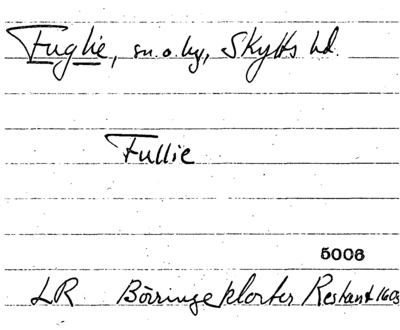 Fuglie, sn.o.by, Skytts hd.
Fullie
5006
LR Börringekloster Restant 1603